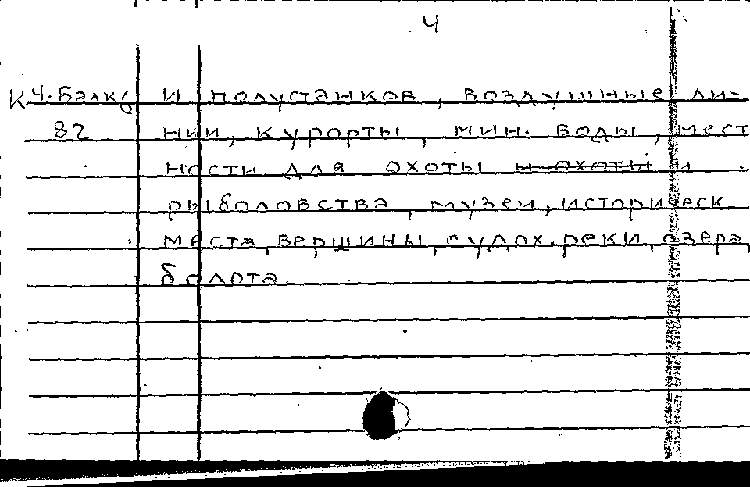 4
К Ч.Бэлк6 И полустанков, воздушные ли-
82 нии, курорты, мин. воды, мест
ности для охоты и охоты и
рыболовства, музеи, историческ.
места, вершины, судох. реки, озера,
болота